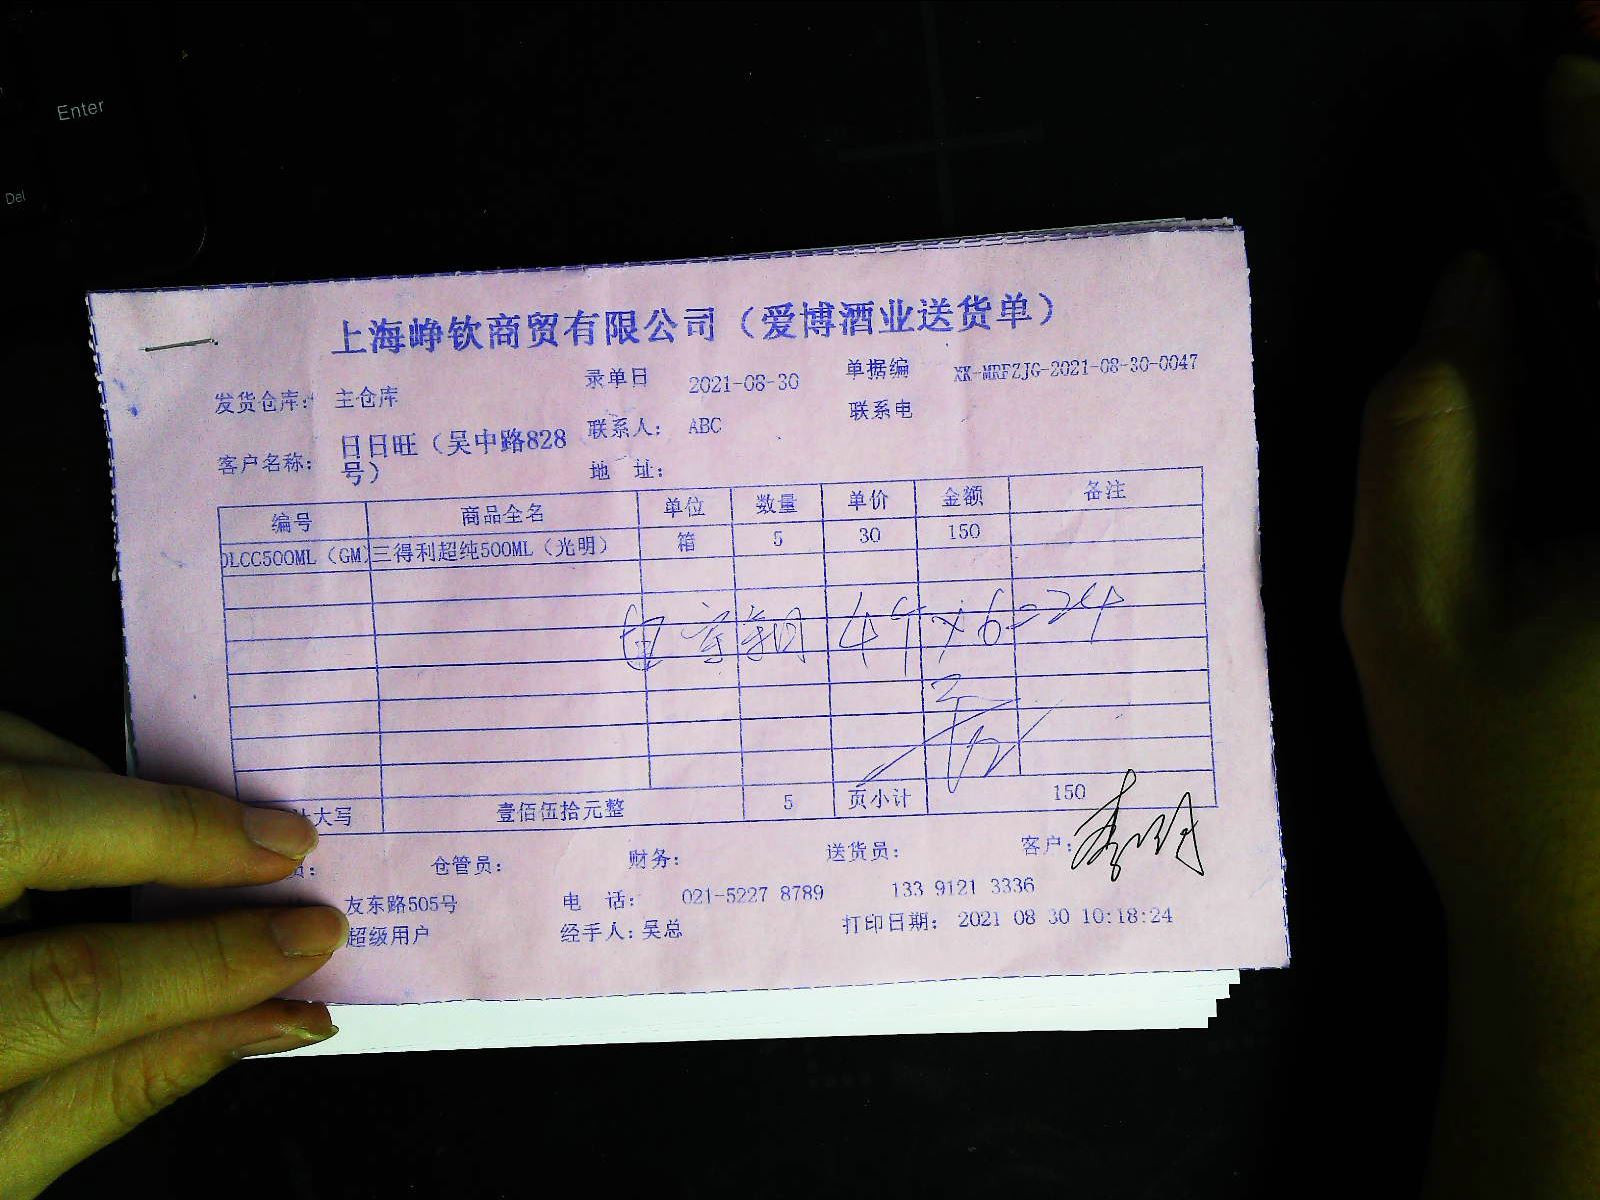 Enter
Del
上海峥钦商贸有限公司（爱博酒业送货单）
发货仓库： 主仓库 录单日 2021-08-30 单据编 XK-MRFZJG-2021-08-30-0047
客户名称： 日日旺（吴中路828号） 联系人： ABC 联系电
地 址：
编号 商品全名 单位 数量 单价 金额 备注
OLCC500ML（GM） 三得利超纯500ML（光明） 箱 5 30 150
49×6=294
大写 壹佰伍拾元整 5 页小计 150
员： 仓管员： 财务： 送货员： 客户：
友东路505号 电 话： 021-5227 8789 133 9121 3336
超级用户 经手人：吴总 打印日期： 2021 08 30 10:18:24